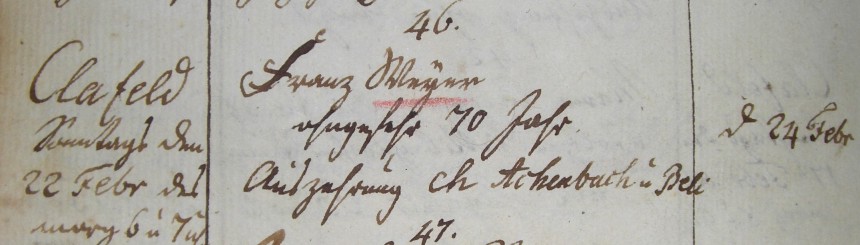 46.
Clafeld
Sonntags den
22 Febr des
morg 6 u 7 uh
Franz Weÿer
ohngefehr 70 Jahr
Auszehrung ch Achenbach u Beli
d 24 Febr
47.